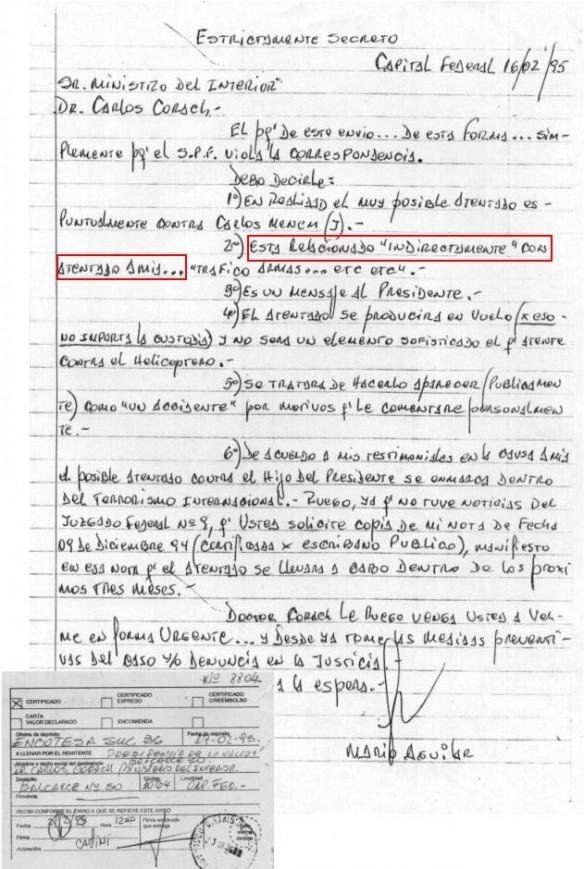 ESTRICTAMENTE SECRETO
CAPITAL FEDERAL 16/02/95
SR. MINISTRO DEL INTERIOR
DR. CARLOS CORACH.-
EL pq' DE ESTE ENVIO... DE ESTA FORMA... SIM-
PLEMENTE pq' EL S.P.F. VIOLA LA CORRESPONDENCIA.
DEBO DECIRLE:
1º) EN REALIDAD EL MUY POSIBLE ATENTADO ES -
PUNTUALMENTE CONTRA CARLOS MENEM (J).-
2º) ESTA RELACIONADO "INDIRECTAMENTE" CON
ATENTADO AMIA... "TRAFICO ARMAS... ETC ETC".-
3º) ES UN MENSAJE AL PRESIDENTE.-
4º) EL ATENTADO SE PRODUCIRA EN VUELO (X ESO -
NO IMPORTA LA CUSTODIA) Y NO SERA UN ELEMENTO SOFISTICADO EL q' ATENTE
CONTRA EL HELICOPTERO.-
5º) SE TRATARA DE HACERLO APARECER (PUBLICAMEN
TE) COMO "UN ACCIDENTE" POR MOTIVOS q' LE COMENTARE PERSONALMEN
TE.-
6º) DE ACUERDO A MIS TESTIMONIALES EN LA CAUSA AMIA
EL POSIBLE ATENTADO CONTRA EL HIJO DEL PRESIDENTE SE ENMARCA DENTRO
DEL TERRORISMO INTERNACIONAL.- RUEGO, YA q' NO TUVE NOTICIAS DEL
JUZGADO FEDERAL Nº 9, q' USTED SOLICITE COPIA DE MI NOTA DE FECHA
09 DE DICIEMBRE 94 (CERTIFICADA X ESCRIBANO PUBLICO), MANIFIESTO
EN ESA NOTA q' EL ATENTADO SE LLEVARA A CABO DENTRO DE LOS PROXI
MOS TRES MESES.-
DOCTOR CORACH LE RUEGO VENGA USTED A VER-
ME EN FORMA URGENTE... Y DESDE YA TOME LAS MEDIDAS PREVENTI-
VAS DEL CASO Y/O DENUNCIA EN LA JUSTICIA.
A LA ESPERA.-
MARIO AGUILAR
Nº 8804
X CERTIFICADO
CERTIFICADO EXPRESO
CERTIFICADO C/REEMBOLSO
CARTA VALOR DECLARADO
ENCOMIENDA
Oficina de depósito
Fecha de depósito
ENCOTESA SUC. 36
A LLENAR POR EL REMITENTE
DR CARLOS CORACH (MINISTERO DEL INTERIOR.
Domicilio
Código
Localidad
BALCARCE Nº 50
1064
CAP. FED.-
Provincia
RECIBI CONFORME EL ENVIO A QUE SE REFIERE ESTE AVISO
Fecha
Hora 1200
Firma empleado que entrega
Firma
Aclaración
CADINI